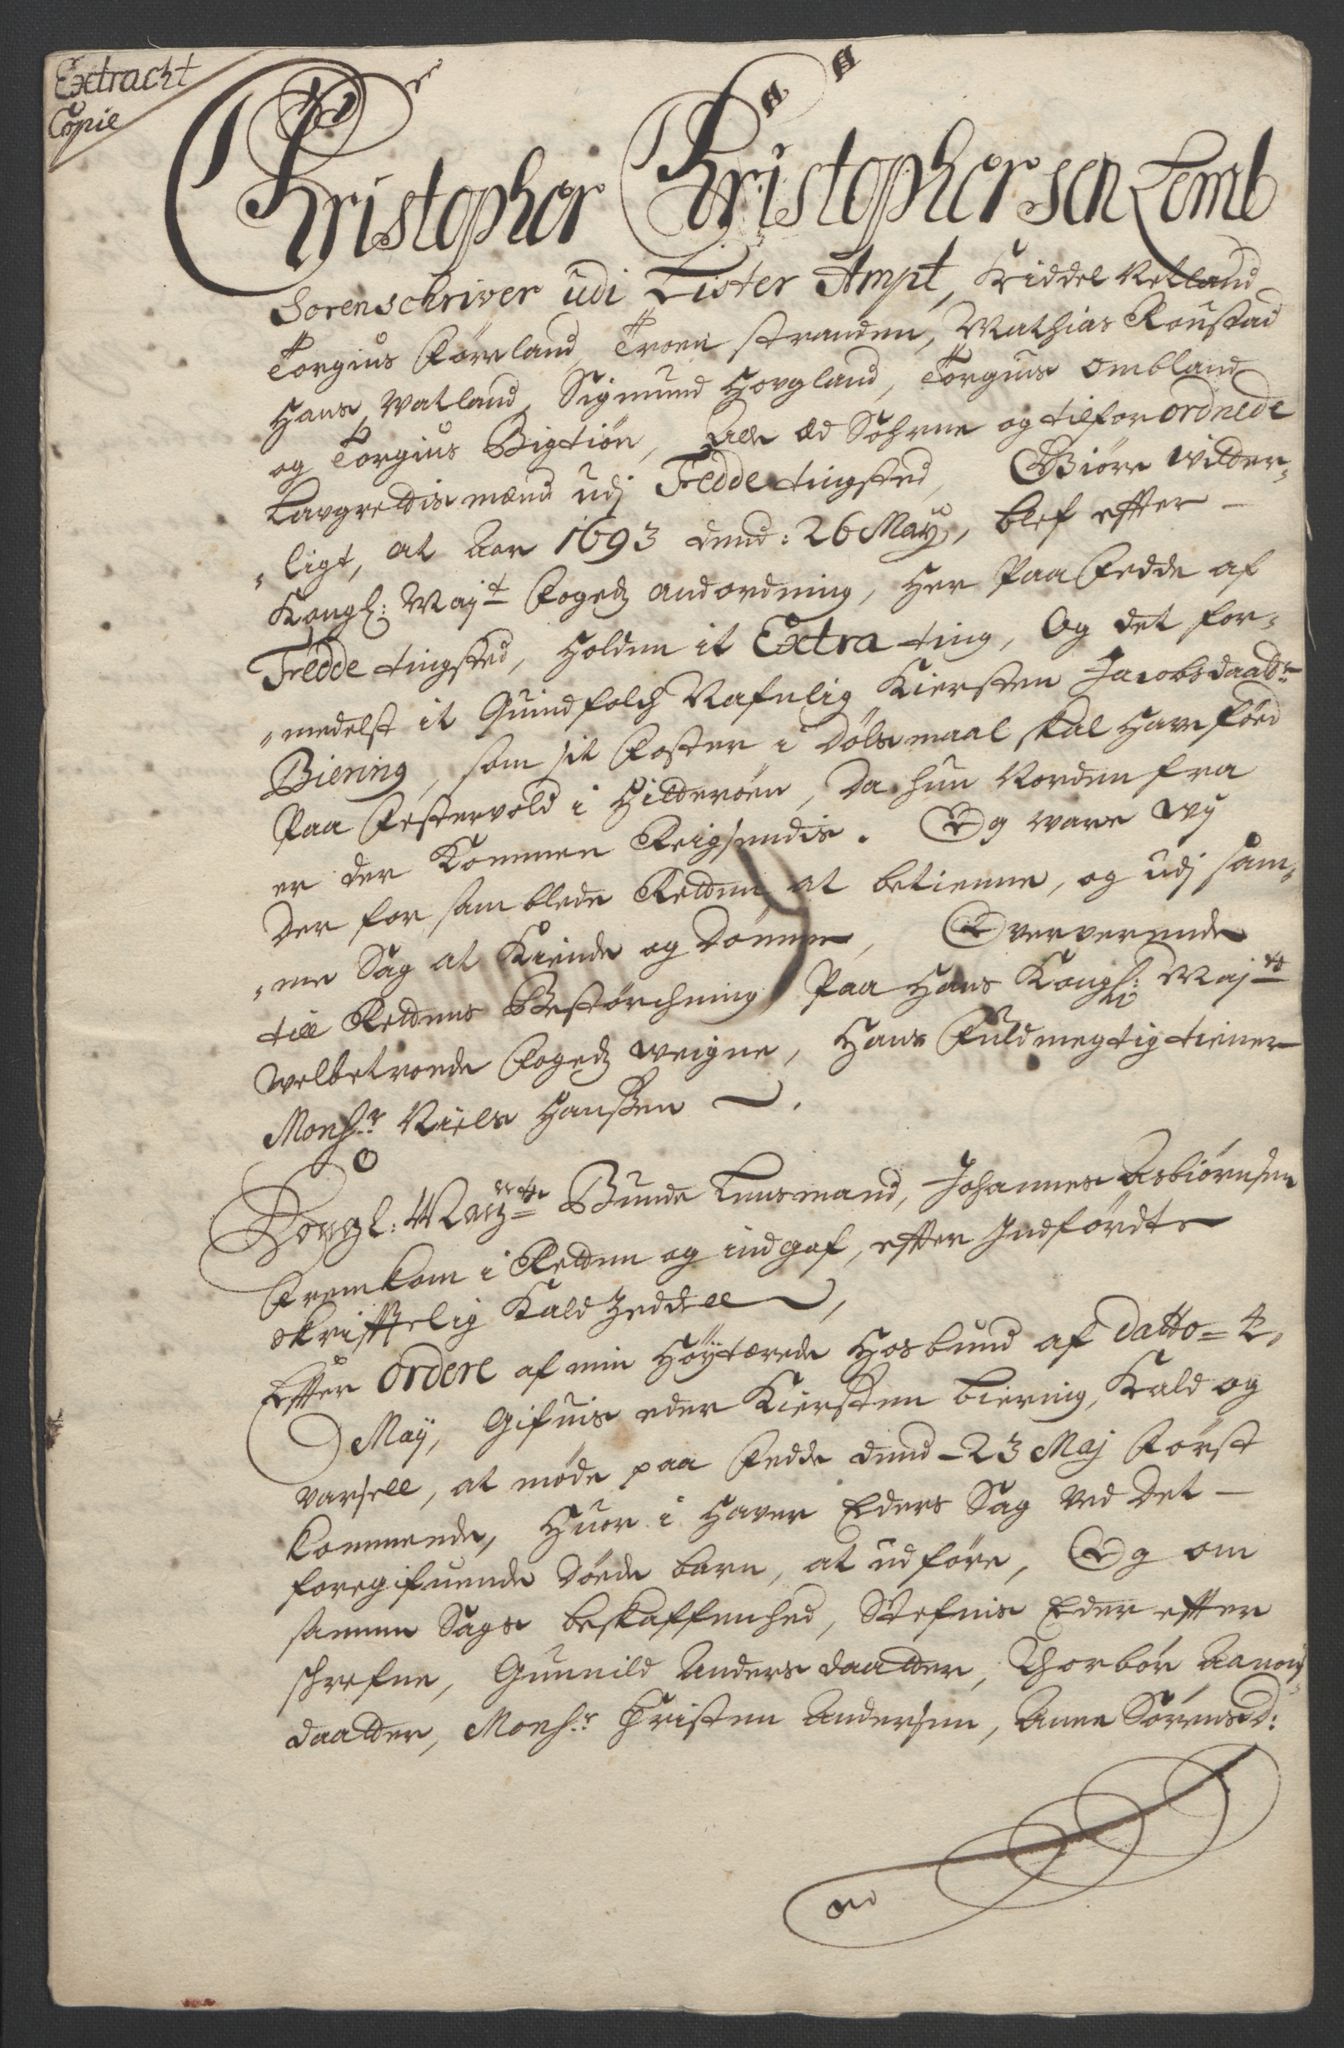 Extracht
Copie
Christopher Christophersen Lemb
Sorenschriver udi Lister Ampt, Kiddel Retland
Torgius Førreland, Troen stranden, Mathias Roustad
Hans Watland, Sigmund Hougland, Torgius Ombland
og Torgius Bigtiøn, Alle Æd Sohrne og tilforordnede
Laugrettis mænd udj Fedde tingsted, Giøre vitter-
ligt, at Aar 1693 dend: 26 May, blef effter
Kongl: Maÿt Fogedz andordning, her paa Fedde af
Fedde tingsted, holden it Extra ting, Og det for-
medelst it Quindfolch Nafnlig Kiersten Jacobsdaatr
Biering, som sit Foster i Dølsmaal skal have fød
paa Festervold i Hitterøen, Da hun Norden fra
er der kommen Reigsendis. Og ware wÿ
der for samblede Retten at betienne, og udj sam-
me Sag at Kiende og Dømme, Oververende
till Rettens Bestørchning paa Hans Kongl: Majts
welbetroede Fogedz weigne, Hans Fuldmegtig tiener
Monsr Niels Hanssen.
Kongl: Maÿts Bunde Lensmand, Johannes Asbiørnsen
Fremkom i Retten og indgaf, effter Indførdte
skrifftelig Kald Zeddell,
Effter Ordere af min Høÿtærede Hosbund af Datto 2
Maÿ, Gifuis eder Kiersten Biering, Kald og
varsell, at møde paa Fedde dend 23 Maj Først
kommende, Huor i haver Eders Sag ved det
foregifuende Døde barn, at udføre, Og om
samme Sags beskaffenhed, Stefnis Eder effter
schrefne, Gunnild Anders daatter, Thorbor Aanons
daatter, Monsr Christen Andersen, Anne Sørensd: